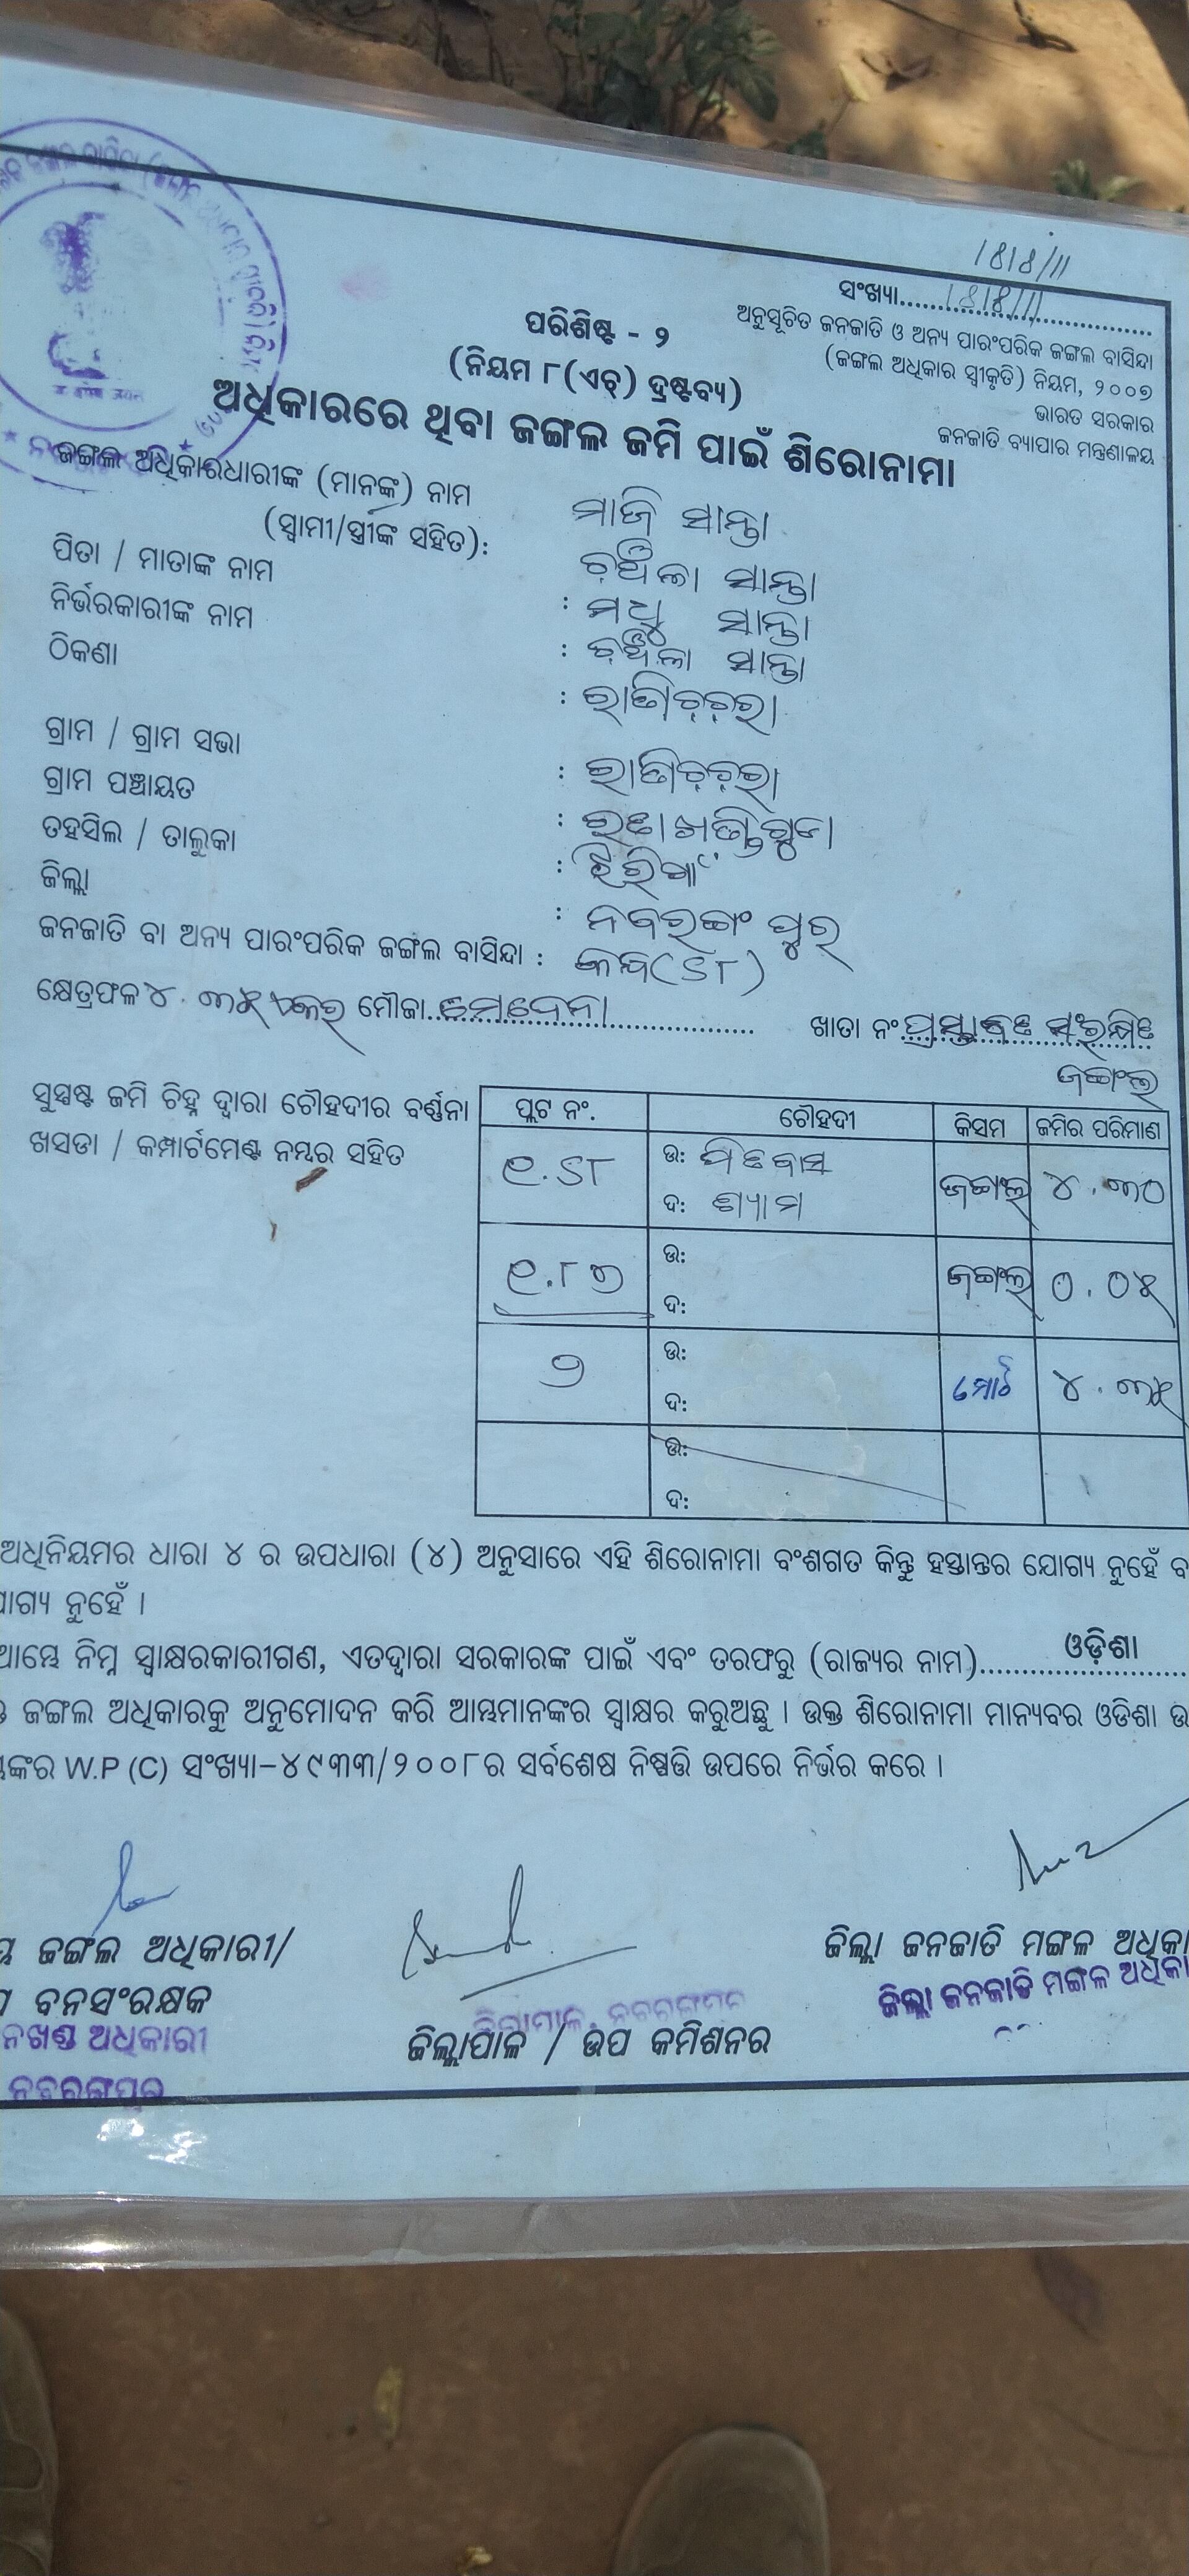 1818/11
ସଂଖ୍ୟା......1818/11......
ଅନୁସୂଚିତ ଜନଜାତି ଓ ଅନ୍ୟ ପାରଂପରିକ ଜଙ୍ଗଲ ବାସିନ୍ଦା
(ଜଙ୍ଗଲ ଅଧିକାର ସ୍ୱୀକୃତି) ନିୟମ, ୨୦୦୭
ଭାରତ ସରକାର
ଜନଜାତି ବ୍ୟାପାର ମନ୍ତ୍ରଣାଳୟ
ପରିଶିଷ୍ଟ - ୨
(ନିୟମ ୮(ଏଚ୍) ଦ୍ରଷ୍ଟବ୍ୟ)
ଅଧିକାରରେ ଥିବା ଜଙ୍ଗଲ ଜମି ପାଇଁ ଶିରୋନାମା
ଜଙ୍ଗଲ ଅଧିକାରଧାରୀଙ୍କ (ମାନଙ୍କ) ନାମ ମାଜି ସାନ୍ତା
(ସ୍ୱାମୀ/ସ୍ତ୍ରୀଙ୍କ ସହିତ): ସାନ୍ତା
ପିତା / ମାତାଙ୍କ ନାମ : ମଧୁ ସାନ୍ତା
ନିର୍ଭରକାରୀଙ୍କ ନାମ : ସାନ୍ତା
ଠିକଣା :
ଗ୍ରାମ / ଗ୍ରାମ ସଭା :
ଗ୍ରାମ ପଞ୍ଚାୟତ :
ତହସିଲ / ତାଲୁକା : ଝରିଗାଁ
ଜିଲ୍ଲା : ନବରଙ୍ଗ ପୁର
ଜନଜାତି ବା ଅନ୍ୟ ପାରଂପରିକ ଜଙ୍ଗଲ ବାସିନ୍ଦା : (ST)
କ୍ଷେତ୍ରଫଳ ୪.୩୫ ଏକର ମୌଜା.................. ଖାତା ନଂ ପ୍ରସ୍ତାବିତ ସଂରକ୍ଷିତ
ଜଙ୍ଗଲ
ସୁସ୍ପଷ୍ଟ ଜମି ଚିହ୍ନ ଦ୍ୱାରା ଚୌହଦୀର ବର୍ଣ୍ଣନା
ଖସଡା / କମ୍ପାର୍ଟମେଣ୍ଟ ନମ୍ବର ସହିତ
ପ୍ଲଟ ନଂ. ଚୌହଦୀ କିସମ ଜମିର ପରିମାଣ
ଉ: ଜଙ୍ଗଲ ୪.୩୦
ଦ: ଶ୍ୟାମ
ଉ: ଜଙ୍ଗଲ ୦.୦୫
ଦ:
୨ ଉ: ମୋଟ ୪.୩୫
ଦ:
ଉ:
ଦ:
ଅଧିନିୟମର ଧାରା ୪ ର ଉପଧାରା (୪) ଅନୁସାରେ ଏହି ଶିରୋନାମା ବଂଶଗତ କିନ୍ତୁ ହସ୍ତାନ୍ତର ଯୋଗ୍ୟ ନୁହେଁ
ନୁହେଁ ।
ଆମ୍ଭେ ନିମ୍ନ ସ୍ୱାକ୍ଷରକାରୀଗଣ, ଏତଦ୍ୱାରା ସରକାରଙ୍କ ପାଇଁ ଏବଂ ତରଫରୁ (ରାଜ୍ୟର ନାମ)......ଓଡ଼ିଶା......
ଜଙ୍ଗଲ ଅଧିକାରକୁ ଅନୁମୋଦନ କରି ଆମ୍ଭମାନଙ୍କର ସ୍ୱାକ୍ଷର କରୁଅଛୁ । ଉକ୍ତ ଶିରୋନାମା ମାନ୍ୟବର ଓଡିଶା
W.P (C) ସଂଖ୍ୟା-୪୯୩୩/୨୦୦୮ର ସର୍ବଶେଷ ନିଷ୍ପତ୍ତି ଉପରେ ନିର୍ଭର କରେ ।
ଜଙ୍ଗଲ ଅଧିକାରୀ/
ବନସଂରକ୍ଷକ
ଅଧିକାରୀ
ନବରଙ୍ଗପୁର
ଜିଲ୍ଲାପାଳ, ନବରଙ୍ଗପୁର
ଜିଲ୍ଲାପାଳ / ଉପ କମିଶନର
ଜିଲ୍ଲା ଜନଜାତି ମଙ୍ଗଳ
ଜିଲ୍ଲା ଜନଜାତି ମଙ୍ଗଳ